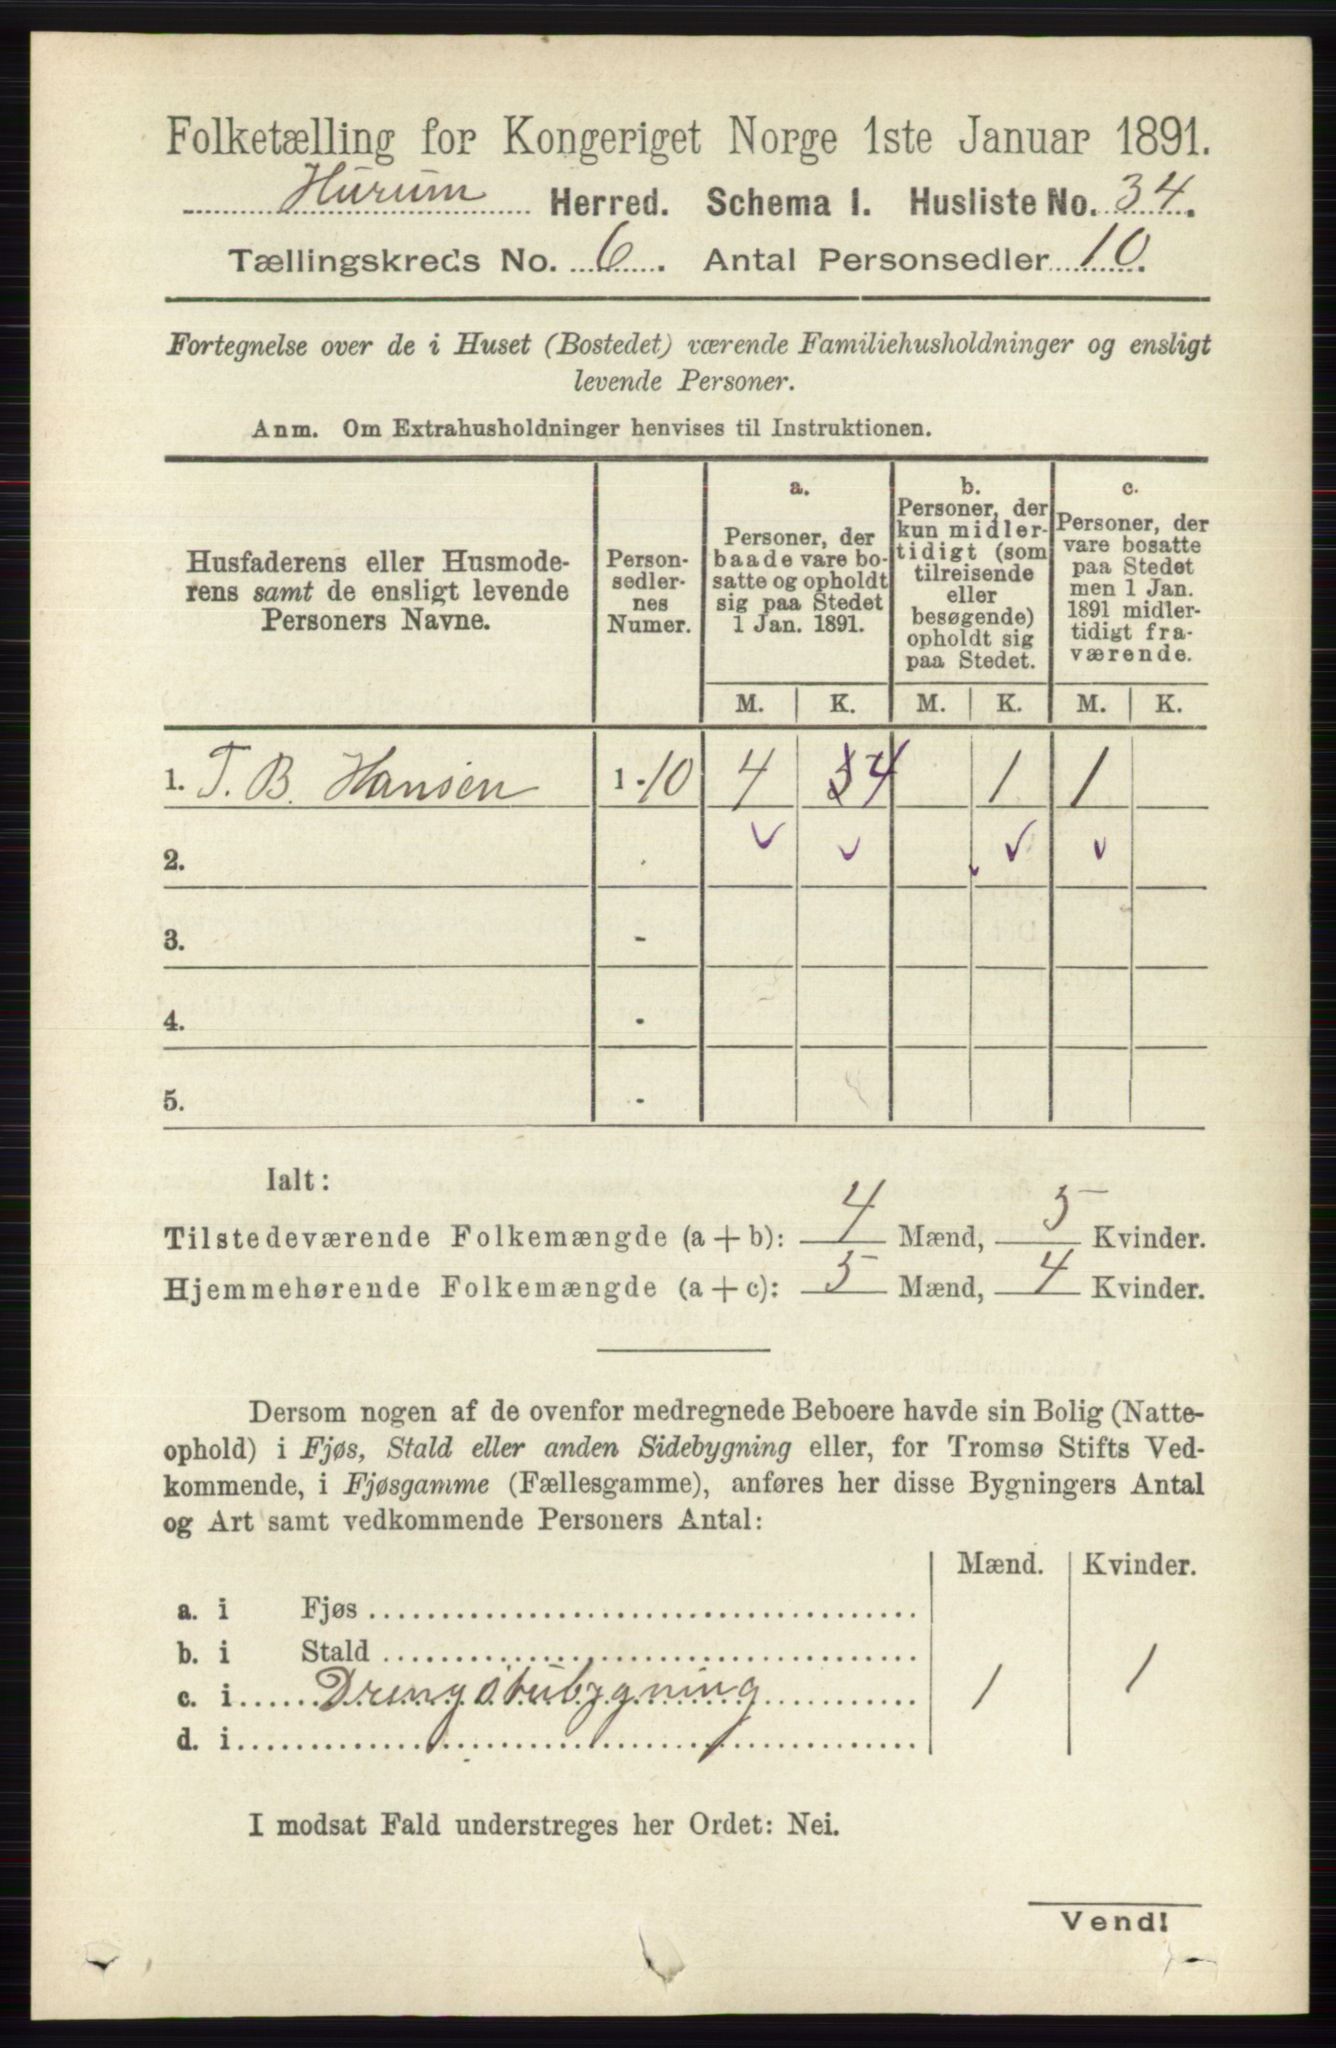 Folketælling for Kongeriget Norge 1ste Januar 1891.
Hurum Herred. Schema I. Husliste No. 34.
Tællingskreds No. 6. Antal Personsedler 10.
Fortegnelse over de i Huset (Bostedet) værende Familiehusholdninger og ensligt
levende Personer.
Anm. Om Extrahusholdninger henvises til Instruktionen.
Husfaderens eller Husmode-
rens samt de ensligt levende
Personers Navne.
Person-
sedler-
nes
Numer.
a.
Personer, der
baade vare bo-
satte og opholdt
sig paa Stedet
1 Jan. 1891.
b.
Personer, der
kun midler-
tidigt (som
tilreisende
eller
besøgende)
opholdt sig
paa Stedet.
c.
Personer, der
vare bosatte
paa Stedet
men 1 Jan.
1891 midler-
tidigt fra-
værende.
M. K. M. K. M. K.
1. T. B. Hansen 1-10 4 4 1 1
2.
3. -
4. -
5. -
Ialt:
Tilstedeværende Folkemængde (a + b): 4 Mænd, 5 Kvinder.
Hjemmehørende Folkemængde (a + c): 5 Mænd, 4 Kvinder.
Dersom nogen af de ovenfor medregnede Beboere havde sin Bolig (Natte-
ophold) i Fjøs, Stald eller anden Sidebygning eller, for Tromsø Stifts Ved-
kommende, i Fjøsgamme (Fællesgamme), anføres her disse Bygningers Antal
og Art samt vedkommende Personers Antal:
Mænd. Kvinder.
a. i Fjøs
b. i Stald
c. i Drengstubygning 1 1
d. i
I modsat Fald understreges her Ordet: Nei.
Vend!